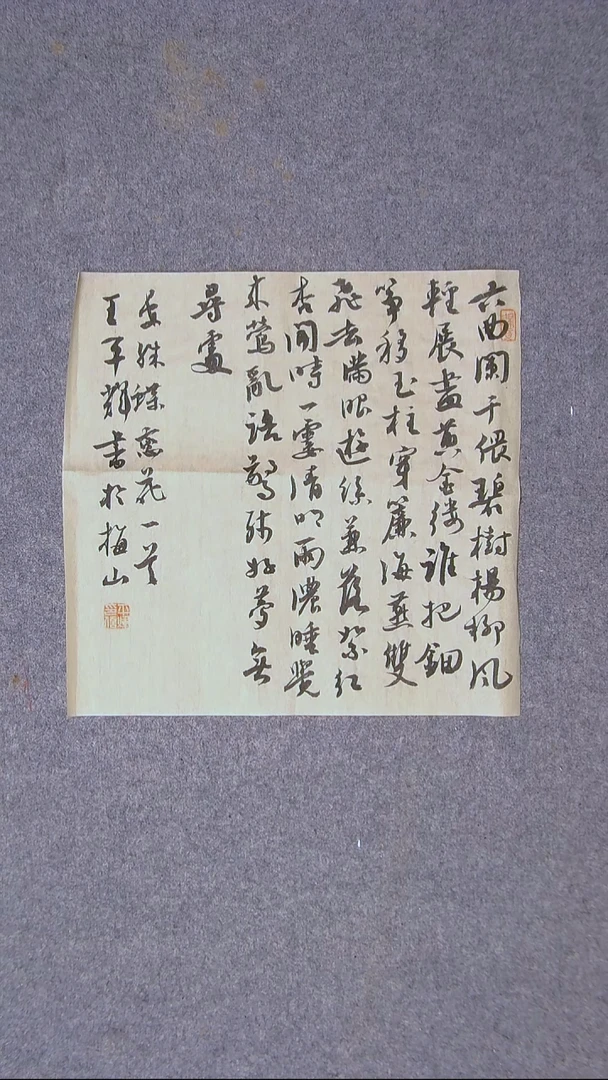 六曲闌干偎碧樹楊柳風
輕展盡黃金縷誰把鈿
箏移玉柱穿簾海燕雙
飛去滿眼遊絲兼落絮紅
杏開時一霎清明雨濃睡覺
來鶯亂語驚殘好夢無
尋處
晏殊蝶戀花一首
王平輝書於梅山